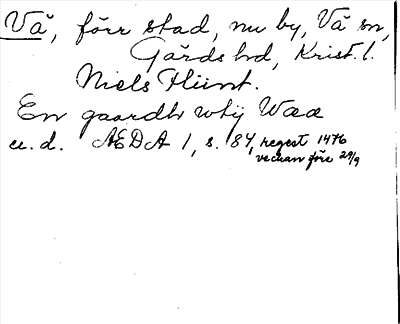 Vä, förr stad, nu by, Vä sn,
Gärds hd, Krist. l.
Niels Fliint.
En gaardh wtij Wææ
u. d. ÆDA 1, s. 84, regest 1476
veckan före 29/9